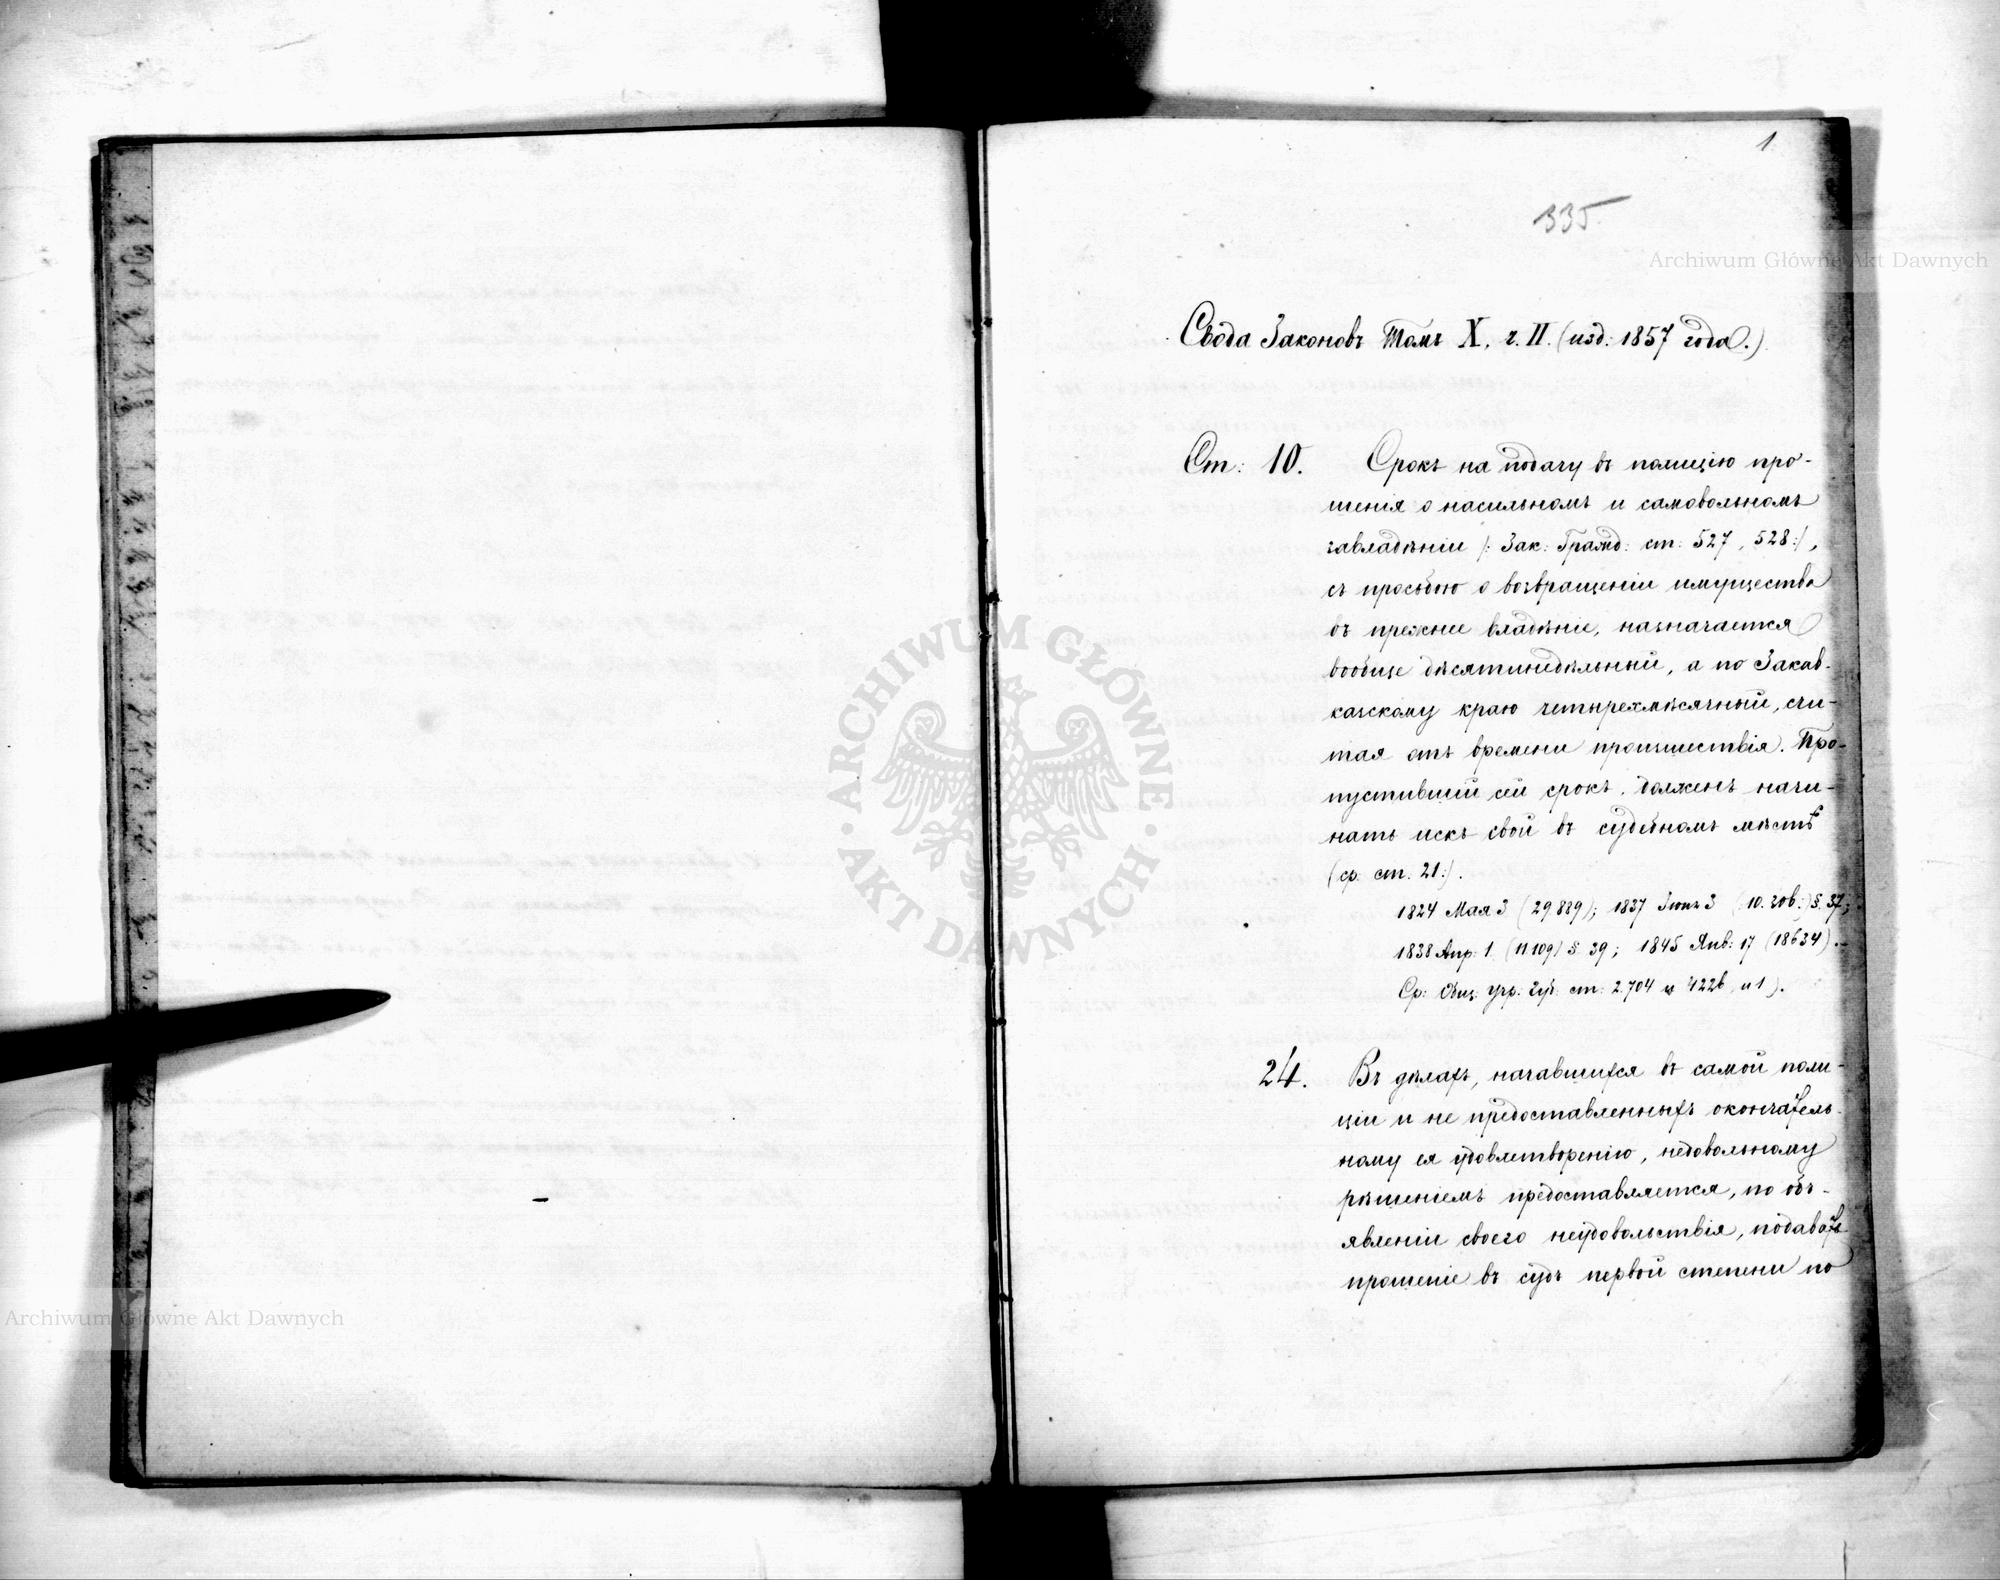 1
335
Archiwum Główne Akt Dawnych
Свода Законовъ Томъ X, ч. II. (изд: 1857 года.)
Ст: 10. Срокъ на подачу въ полицію про-
шенія о насильномъ и самовольномъ
завладѣніи /: Зак: Гражд: ст: 527, 528:/,
съ просьбою о возвращеніи имущества
въ прежнее владѣніе, назначается
вообще десятинедѣльный, а по Закав-
казскому краю четырехмѣсячный, счи-
тая отъ времени происшествія. Про-
пустившій сей срокъ, долженъ начи-
нать искъ свой въ судебномъ мѣстѣ
(ср. ст. 21:).
1824 Мая 3 (29.889); 1837 Іюня 3 (10.303:) § 37;
1838 Апр: 1. (11109) § 39; 1845 Янв: 17 (18634).
Ср: Общ. учр. губ: ст: 2.704 и 4226, п 1).
24. Въ дѣлахъ, начавшихся въ самой поли-
ціи и не предоставленныхъ окончатель-
ному ея удовлетворенію, недовольному
рѣшеніемъ предоставляется, по объ-
явленіи своего неудовольствія, подавать
прошеніе въ судъ первой степени по
ARCHIWUM GŁÓWNE
AKT DAWNYCH
Archiwum Główne Akt Dawnych